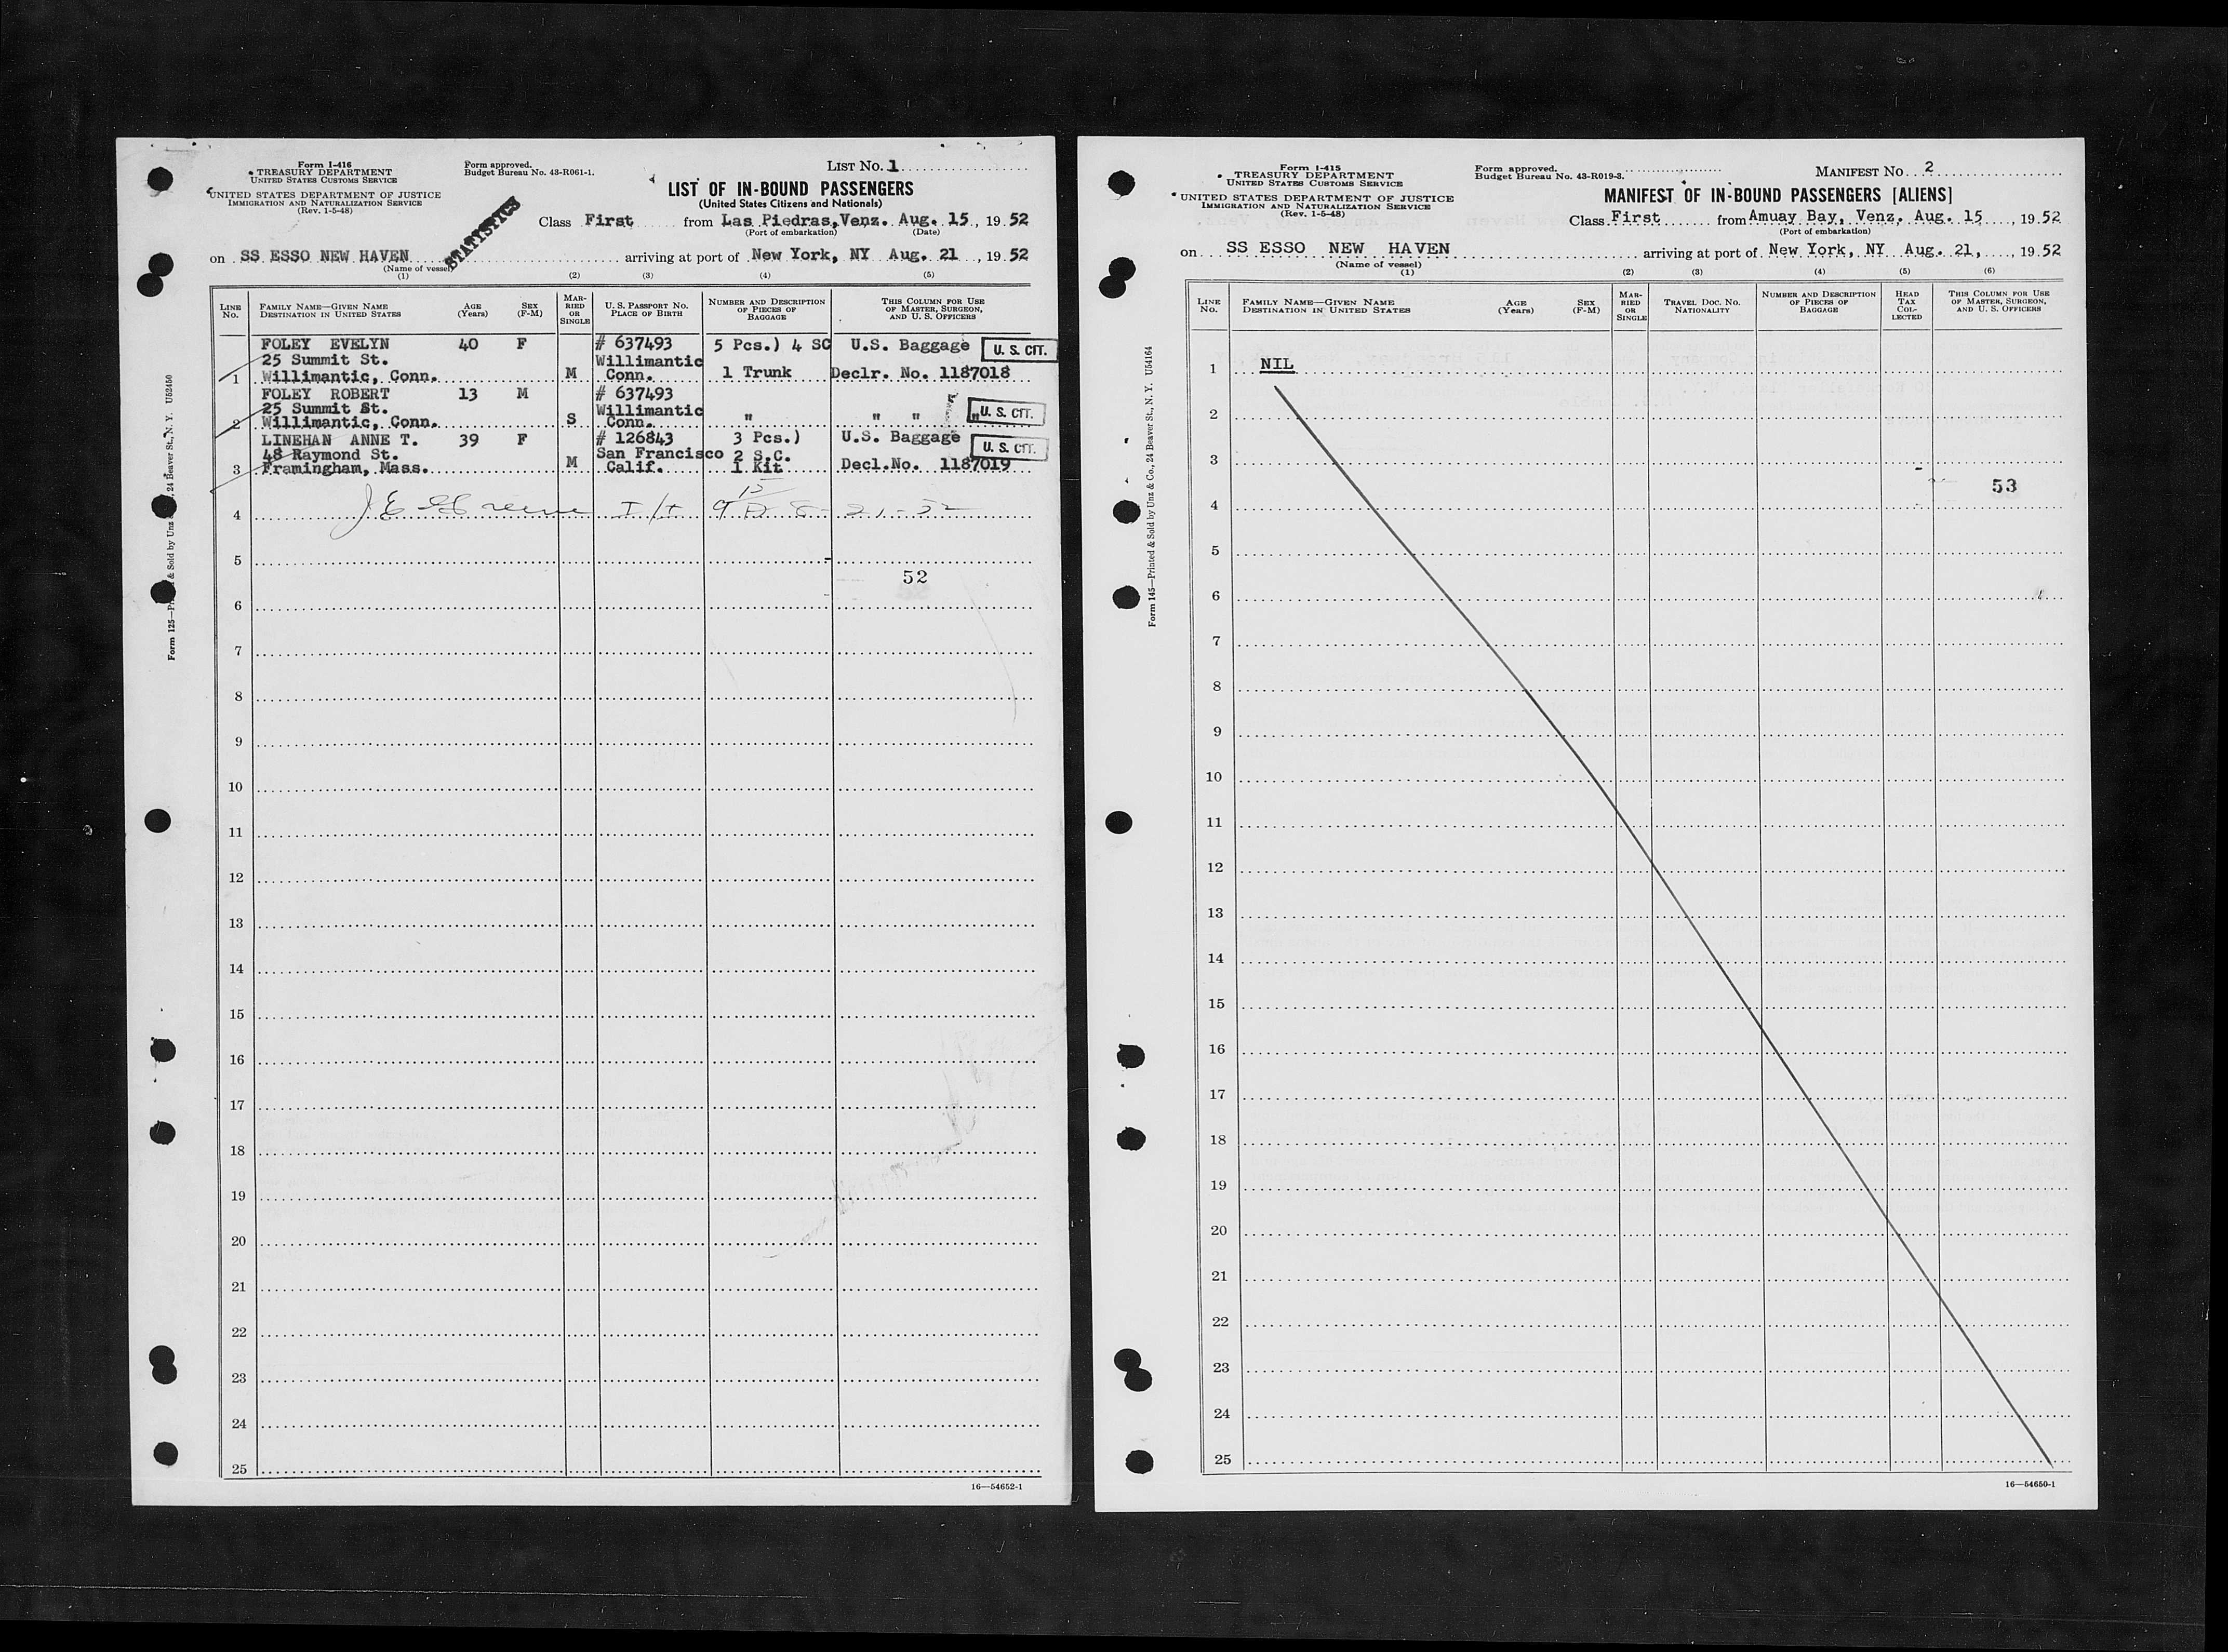 Form I-416
TREASURY DEPARTMENT
UNITED STATES CUSTOMS SERVICE
UNITED STATES DEPARTMENT OF JUSTICE
IMMIGRATION AND NATURALIZATION SERVICE
(Rev. 1-5-48)
Form approved.
Budget Bureau No. 43-R061-1.
LIST No. 1
LIST OF IN-BOUND PASSENGERS
(United States Citizens and Nationals)
STATISTICS
Class First from Las Piedras, Venz. Aug. 15, 19 52
(Port of embarkation) (Date)
on SS ESSO NEW HAVEN arriving at port of New York, NY Aug. 21, 19 52
(Name of vessel)
(1) (2) (3) (4) (5)
LINE No. FAMILY NAME—GIVEN NAME DESTINATION IN UNITED STATES AGE (Years) SEX (F-M) MARRIED OR SINGLE U. S. PASSPORT No. PLACE OF BIRTH NUMBER AND DESCRIPTION OF PIECES OF BAGGAGE THIS COLUMN FOR USE OF MASTER, SURGEON, AND U. S. OFFICERS
FOLEY EVELYN 40 F # 637493 5 Pcs.) 4 SC U.S. Baggage U. S. CIT.
25 Summit St. Willimantic
1 Willimantic, Conn. M Conn. 1 Trunk Declr. No. 1187018
FOLEY ROBERT 13 M # 637493
25 Summit St. Willimantic " " " " U. S. CIT.
2 Willimantic, Conn. S Conn.
LINEHAN ANNE T. 39 F # 126843 3 Pcs.) U.S. Baggage U. S. CIT.
48 Raymond St. San Francisco 2 S.C.
3 Framingham, Mass. M Calif. 1 Kit Decl.No. 1187019
4
5
52
6
7
8
9
10
11
12
13
14
15
16
17
18
19
20
21
22
23
24
25
16—54652-1
Form I-415
TREASURY DEPARTMENT
UNITED STATES CUSTOMS SERVICE
UNITED STATES DEPARTMENT OF JUSTICE
IMMIGRATION AND NATURALIZATION SERVICE
(Rev. 1-5-48)
Form approved.
Budget Bureau No. 43-R019-3.
MANIFEST No. 2
MANIFEST OF IN-BOUND PASSENGERS [ALIENS]
Class First from Amuay Bay, Venz. Aug. 15, 19 52
(Port of embarkation)
on SS ESSO NEW HAVEN arriving at port of New York, NY Aug. 21, 19 52
(Name of vessel)
(1) (2) (3) (4) (5) (6)
LINE No. FAMILY NAME—GIVEN NAME DESTINATION IN UNITED STATES AGE (Years) SEX (F-M) MARRIED OR SINGLE TRAVEL DOC. No. NATIONALITY NUMBER AND DESCRIPTION OF PIECES OF BAGGAGE HEAD TAX COLLECTED THIS COLUMN FOR USE OF MASTER, SURGEON, AND U. S. OFFICERS
1 NIL
2
3
53
4
5
6
7
8
9
10
11
12
13
14
15
16
17
18
19
20
21
22
23
24
25
16—54650-1
Form 145—Printed & Sold by Unz & Co., 24 Beaver St., N. Y. U54164